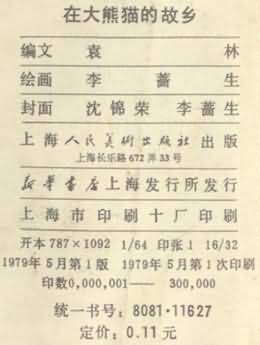 在大熊猫的故乡
编文 袁 林
绘画 李蔷生
封面 沈锦荣 李蔷生
上海人民美术出版社出版
上海长乐路672弄33号
新华书店上海发行所发行
上海市印刷十厂印刷
开本787×1092 1/64 印张1 16/32
1979年5月第1版 1979年5月第1次印刷
印数0,000,001—— 300,000
统一书号：8081·11627
定价：0.11元